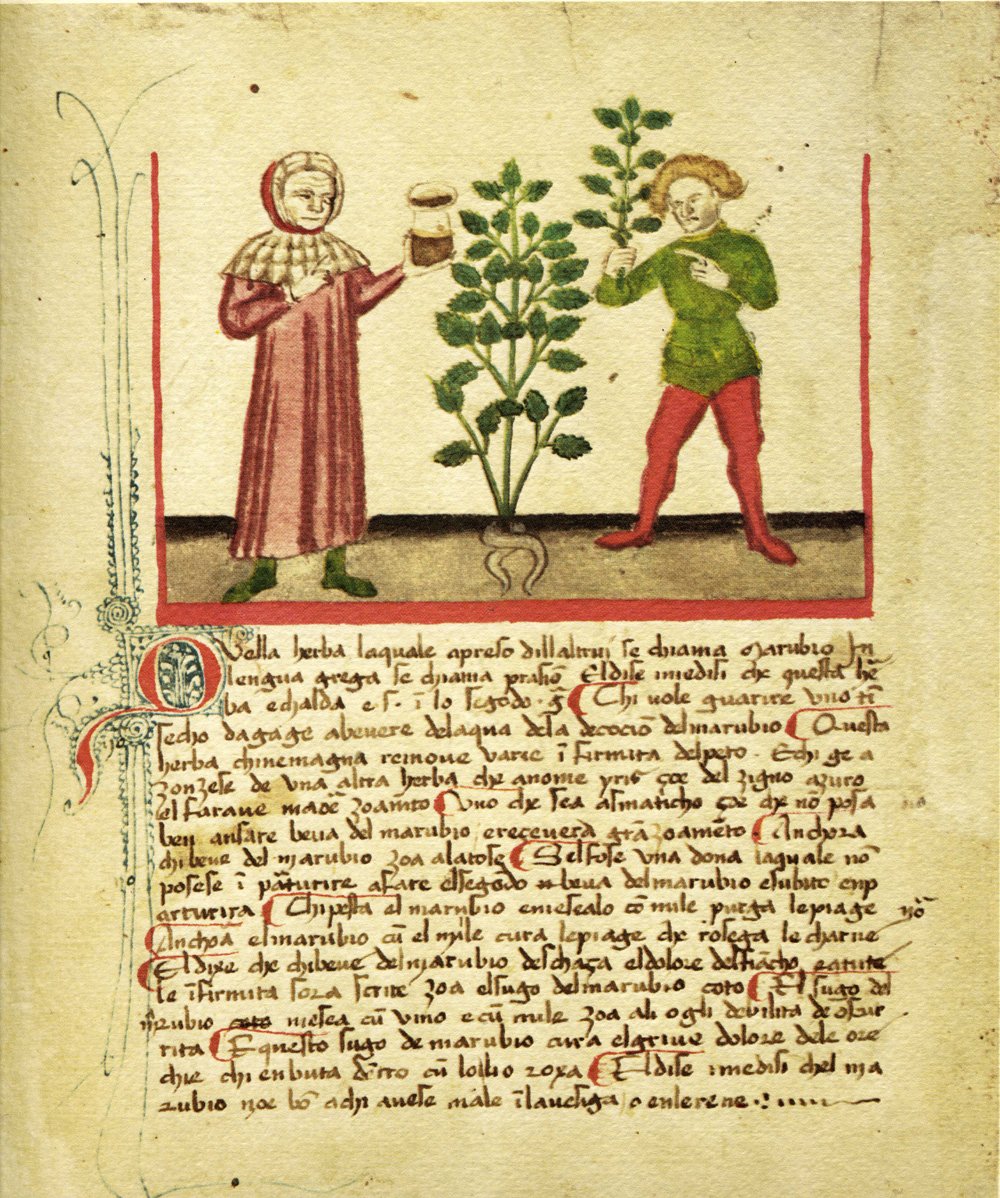 Quella herba laquale apreso dillaltrui se chiama Marubio In
lengua grega se chiama prasiō El dise i medisi che questa hē
ba e chalda e s. ī lo segōdo. g̃ Chi vole guarire vno tī
secho daga ge abevere delaqua dela decociō del marubio Questa
herba chi ne magna remove varie īfirmita del peto. E chi ge a
zonzese de vna altra herba che a nome yris çoe del zigno azuro
el farave maōr zoamēto Vno che sea asmaticho çoe che nō posa
ben ansare beva del marubio e recevera grā zoamēto Anchora
chi beve del marubio zoa a la tose Sel fose vna dona laquale nō
posese ī parturire a fare el segōdo beva del marubio e subito enp
arturira Chi pesta el marubio e mesealo cō mile purga le piage nō
Anchoa el marubio cū el mile cura le piage che rosega le charne
El dixe che chi beve del marubio deschaça el dolore del stācho e a tute
le īfirmita sora scrite zoa el sugo del marubio coto El sugo del
marubio coto mesea cū vino e cū mile zoa ali ogli debilita de oscur
rita E questo sugo de marubio cura el grieve dolore dele ore
chie chi en buta dētro cū lollio roxa El dise i medisi chel ma
rubio noe bō a chi avese male ī la vesiga o en le rene